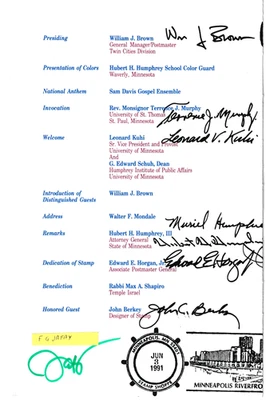 Presiding William J. Brown
General Manager/Postmaster
Twin Cities Division
Wm J Brown
Presentation of Colors Hubert H. Humphrey School Color Guard
Waverly, Minnesota
National Anthem Sam Davis Gospel Ensemble
Invocation Rev. Monsignor Terrence J. Murphy
University of St. Thomas
St. Paul, Minnesota
Terrence J. Murphy
Welcome Leonard Kuhi
Sr Vice President and Provost
University of Minnesota
And
G. Edward Schuh, Dean
Humphrey Institute of Public Affairs
University of Minnesota
Leonard V. Kuhi
Introduction of William J. Brown
Distinguished Guests
Address Walter F. Mondale
Muriel Humphrey
Remarks Hubert H. Humphrey, III
Attorney General
State of Minnesota
Dedication of Stamp Edward E. Horgan, Jr.
Associate Postmaster General
Edward E. Horgan
Benediction Rabbi Max A. Shapiro
Temple Israel
Honored Guest John Berkey
Designer of Stamp
John C. Berkey
MINNEAPOLIS, MN
JUN
3
1991
STAMP SHOPPE
MINNEAPOLIS RIVERFRO